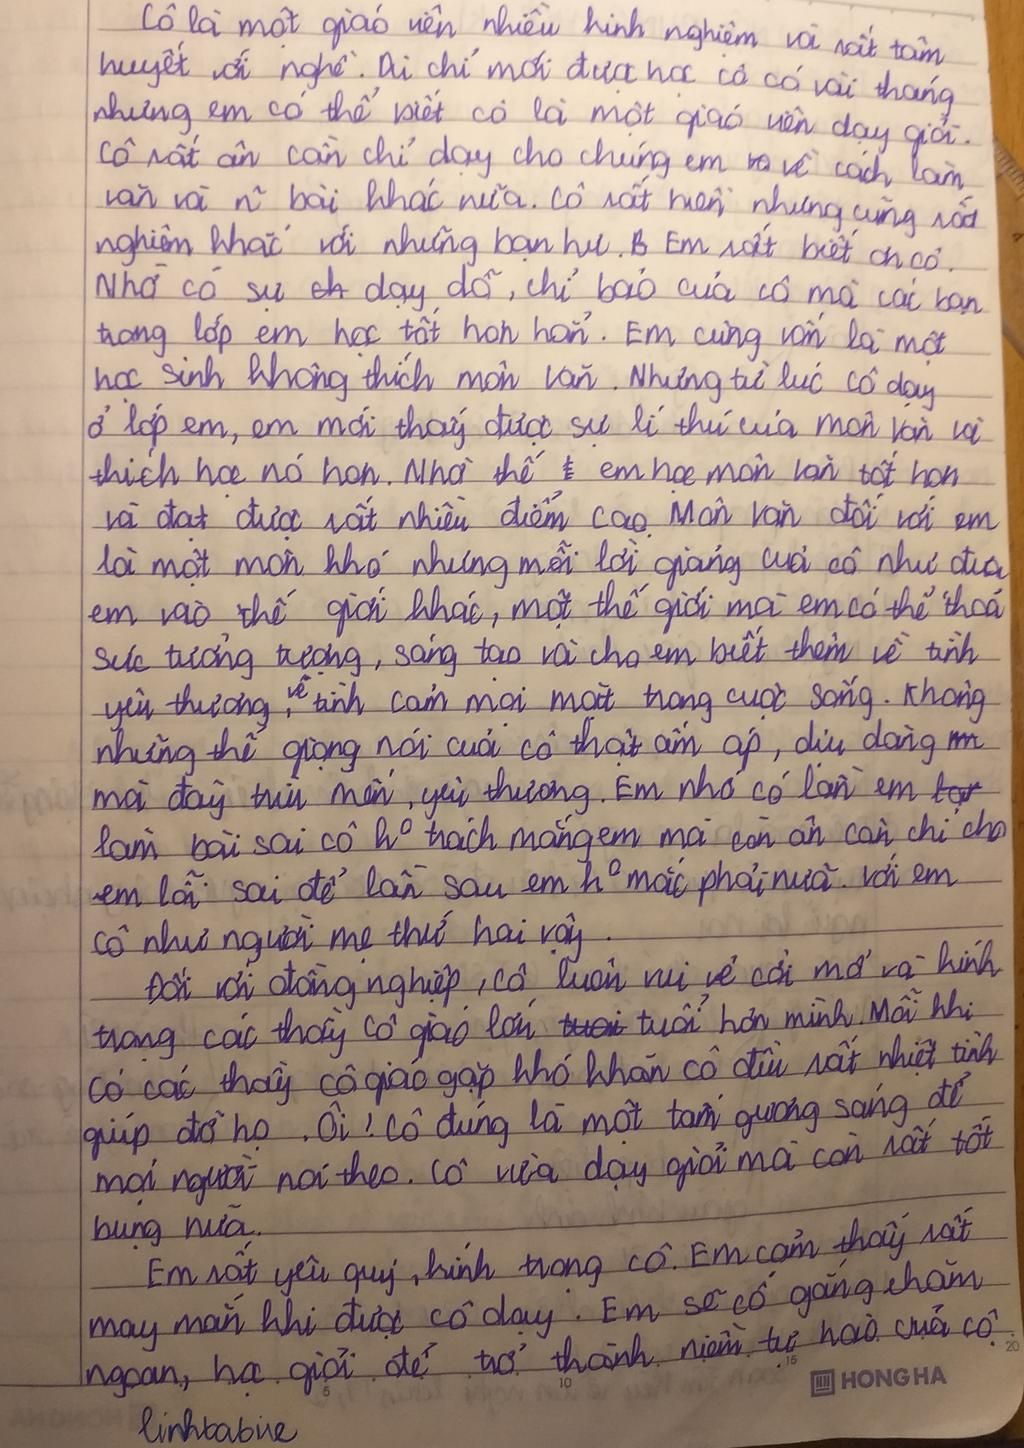 Cô là một giáo viên nhiều kinh nghiệm và rất tâm
huyết với nghề. Dù chỉ mới được học cô có vài tháng
nhưng em có thể biết cô là một giáo viên dạy giỏi.
Cô rất ân cần chỉ dạy cho chúng em về cách làm
văn và n~ bài khác nữa. Cô rất hiền nhưng cũng rất
nghiêm khắc với những bạn hư. Em rất biết ơn cô.
Nhờ có sự dạy dỗ, chỉ bảo của cô mà các bạn
trong lớp em học tốt hơn hẳn. Em cũng vốn là một
học sinh không thích môn văn. Nhưng từ lúc cô dạy
ở lớp em, em mới thấy được sự lí thú của môn văn và
thích học nó hơn. Nhờ thế em học môn văn tốt hơn
và đạt được rất nhiều điểm cao. Môn văn đối với em
là một môn khó nhưng mỗi lời giảng của cô như đưa
em vào thế giới khác, một thế giới mà em có thể thoả
sức tưởng tượng, sáng tạo và cho em biết thêm về tình
yêu thương, về tình cảm mọi mặt trong cuộc sống. Không
những thế giọng nói của cô thật ấm áp, dịu dàng
mà đầy trìu mến, yêu thương. Em nhớ có lần em
làm bài sai cô h⁰ trách mắng em mà còn ân cần chỉ cho
em lỗi sai để lần sau em h⁰ mắc phải nữa. Với em
cô như người mẹ thứ hai vậy.
Đối với đồng nghiệp, cô luôn vui vẻ cởi mở và kính
trọng các thầy cô giáo lớn tuổi hơn mình. Mỗi khi
có các thầy cô giáo gặp khó khăn cô đều rất nhiệt tình
giúp đỡ họ. Ôi! Cô đúng là một tấm gương sáng để
mọi người noi theo. Cô vừa dạy giỏi mà còn rất tốt
bụng nữa.
Em rất yêu quý, kính trọng cô. Em cảm thấy rất
may mắn khi được cô dạy. Em sẽ cố gắng chăm
ngoan, học giỏi để trở thành niềm tự hào của cô.
5 10 15 20
HONG HA
linhbabie